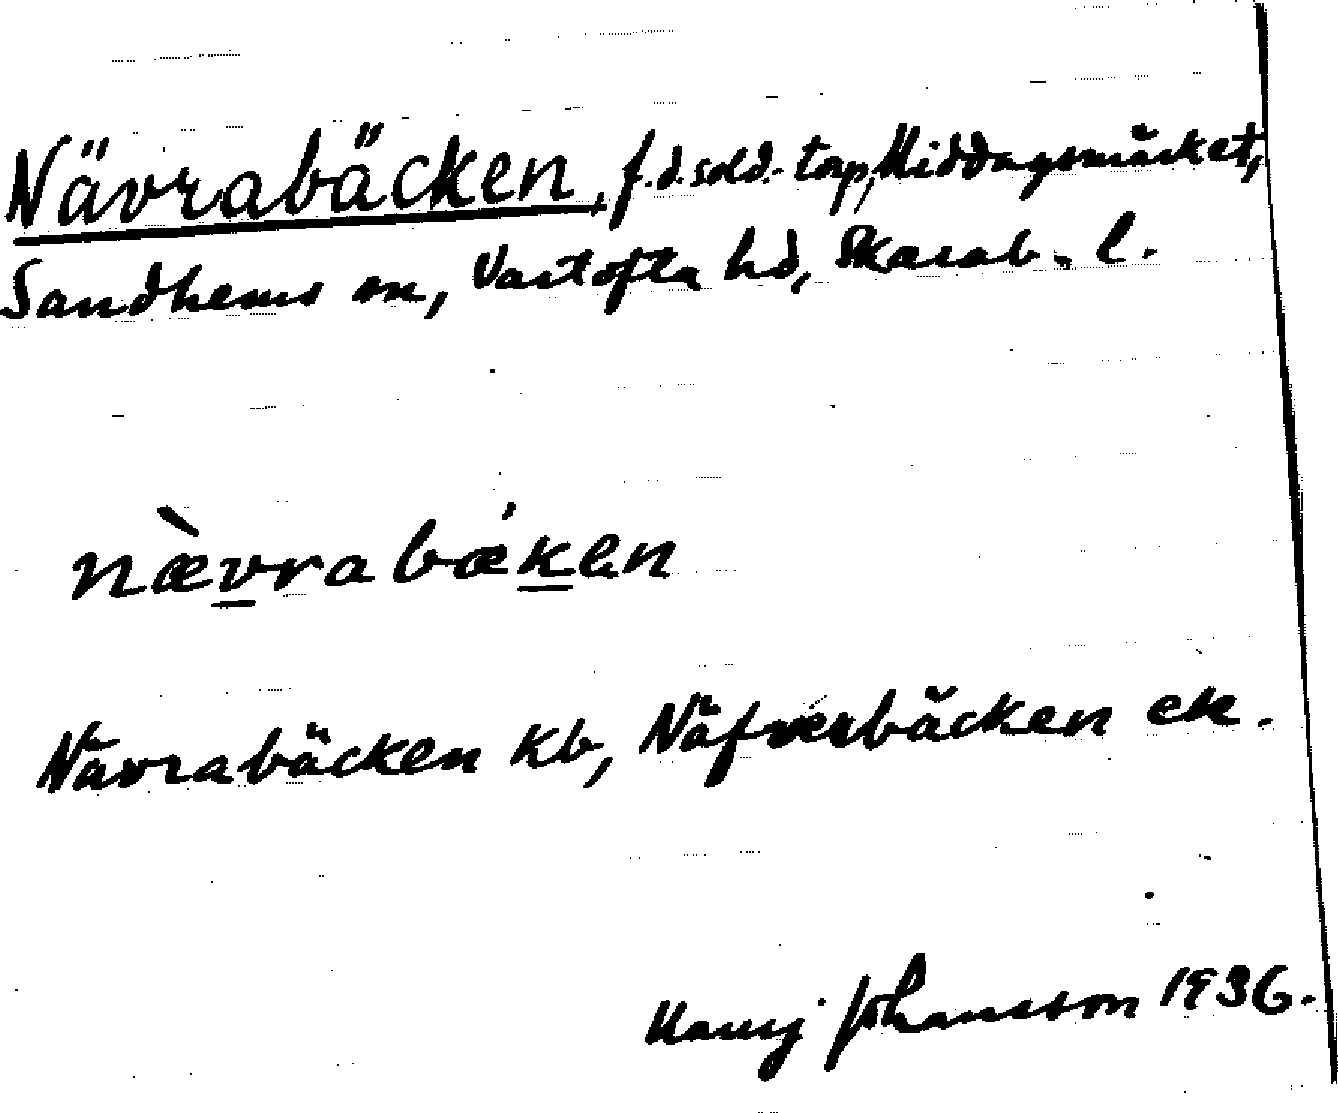 Nävrabäcken, f.d. sold.-torp, Middagsmärket,
Sandhems sn, Vartofta hd, Skarab. l.
nævrabækən
Nävrabäcken kb, Näfverbäcken ek.
Johansson 1936.